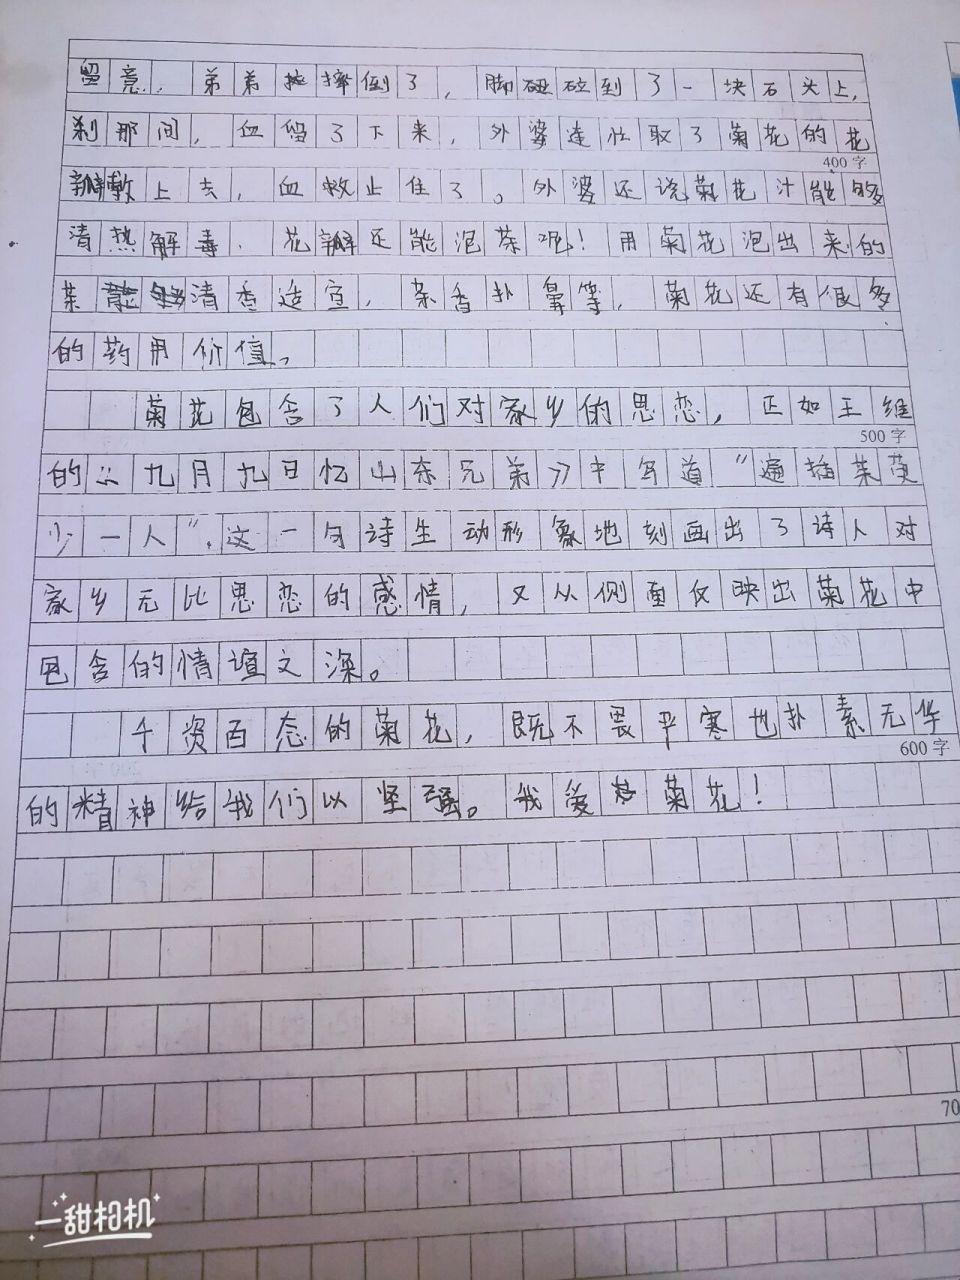 留意，弟弟摔倒了，脚碰到了一块石头上，
刹那间，血留了下来，外婆连忙取了菊花的花
400字
瓣敷上去，血救止住了。外婆还说菊花汁能够
清热解毒，花瓣还能泡茶呢！用菊花泡出来的
茶清香适宜，茶香扑鼻等，菊花还有很多
的药用价值。
菊花包含了人们对家乡的思恋，正如王维
500字
的《九月九日忆山东兄弟》中写道"遍插茱萸
少一人"，这一句诗生动形象地刻画出了诗人对
家乡无比思恋的感情，又从侧面反映出菊花中
包含的情谊之深。
千资百态的菊花，既不畏严寒也扑素无华
600字
的精神给我们以坚强。我爱菊花！
70
一甜相机